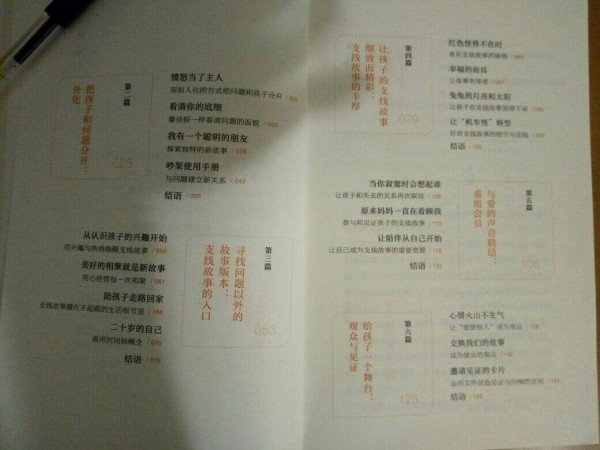 第二篇
把孩子和问题分开：
外化
025
愤怒当了主人
用拟人化的方式把问题和孩子分开
看清你的底细
像侦探一样看清问题的面貌
我有一个聪明的朋友
探索独特的新故事 / 038
吵架使用手册
与问题建立新关系 / 043
结语 / 050
第三篇
寻找问题以外的
故事版本：
支线故事的入口
053
从认识孩子的兴趣开始
用兴趣与热情唤醒支线故事
美好的相聚就是新故事
用心经营每一次相聚
陪孩子走路回家
支线故事藏在不起眼的生活细节里
二十岁的自己
善用时间轴概念 / 070
结语 / 076
第四篇
让孩子的支线故事
细致而精彩：
支线故事的丰厚
079
红色怪兽不在时
幸福的面目
让故事有厚度
兔兔的月亮和太阳
让“机车怪”转型
结语
第五篇
与爱的声音联结：
重组会员
105
当你寂寞时会想起谁
让孩子和失去的关系再次联结
原来妈妈一直在看顾我
参与和见证孩子的支线故事
让陪伴从自己开始
让自己成为支线故事的重要资源
结语
第六篇
给孩子一个舞台：
观众与见证
125
心情火山不生气
让“重要他人”成为观众
交换我们的故事
成为彼此的观众
邀请见证的卡片
运用文件创造见证与回响的空间
结语